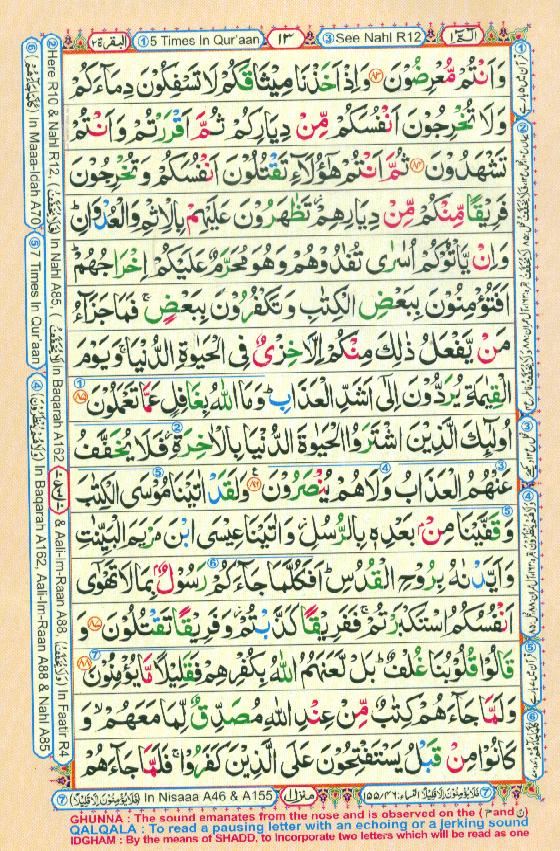 البقرة ٢
① 5 Times In Qur'aan
١٣
③ See Nahl R12
الٓمّٓ ١
وَاَنْتُمْ مُّعْرِضُوْنَ ﴿٨٣﴾ وَاِذْ اَخَذْنَا مِيْثَاقَكُمْ لَا تَسْفِكُوْنَ دِمَآءَكُمْ
وَلَا تُخْرِجُوْنَ اَنْفُسَكُمْ مِّنْ دِيَارِكُمْ ثُمَّ اَقْرَرْتُمْ وَاَنْتُمْ
تَشْهَدُوْنَ ﴿٨٤﴾ ثُمَّ اَنْتُمْ هٰٓؤُلَآءِ تَقْتُلُوْنَ اَنْفُسَكُمْ وَتُخْرِجُوْنَ
فَرِيْقًا مِّنْكُمْ مِّنْ دِيَارِهِمْ ؗ تَظٰهَرُوْنَ عَلَيْهِمْ بِالْاِثْمِ وَالْعُدْوَانِ ؕ
وَاِنْ يَّاْتُوْكُمْ اُسٰرٰى تُفٰدُوْهُمْ وَهُوَ مُحَرَّمٌ عَلَيْكُمْ اِخْرَاجُهُمْ ؕ
اَفَتُؤْمِنُوْنَ بِبَعْضِ الْكِتٰبِ وَتَكْفُرُوْنَ بِبَعْضٍ ۚ فَمَا جَزَآءُ
مَنْ يَّفْعَلُ ذٰلِكَ مِنْكُمْ اِلَّا خِزْىٌ فِى الْحَيٰوةِ الدُّنْيَا ۚ وَيَوْمَ
الْقِيٰمَةِ يُرَدُّوْنَ اِلٰٓى اَشَدِّ الْعَذَابِ ؕ وَمَا اللّٰهُ بِغَافِلٍ عَمَّا تَعْمَلُوْنَ ﴿٨٥﴾
اُولٰٓئِكَ الَّذِيْنَ اشْتَرَوُا الْحَيٰوةَ الدُّنْيَا بِالْاٰخِرَةِ ؗ فَلَا يُخَفَّفُ
عَنْهُمُ الْعَذَابُ وَلَا هُمْ يُنْصَرُوْنَ ﴿٨٦﴾ وَلَقَدْ اٰتَيْنَا مُوْسَى الْكِتٰبَ
وَقَفَّيْنَا مِنْۢ بَعْدِهٖ بِالرُّسُلِ ؗ وَاٰتَيْنَا عِيْسَى ابْنَ مَرْيَمَ الْبَيِّنٰتِ
وَاَيَّدْنٰهُ بِرُوْحِ الْقُدُسِ ؕ اَفَكُلَّمَا جَآءَكُمْ رَسُوْلٌۢ بِمَا لَا تَهْوٰٓى
اَنْفُسُكُمُ اسْتَكْبَرْتُمْ ۚ فَفَرِيْقًا كَذَّبْتُمْ ؗ وَفَرِيْقًا تَقْتُلُوْنَ ﴿٨٧﴾ وَ
قَالُوْا قُلُوْبُنَا غُلْفٌ ؕ بَلْ لَّعَنَهُمُ اللّٰهُ بِكُفْرِهِمْ فَقَلِيْلًا مَّا يُؤْمِنُوْنَ ﴿٨٨﴾
وَلَمَّا جَآءَهُمْ كِتٰبٌ مِّنْ عِنْدِ اللّٰهِ مُصَدِّقٌ لِّمَا مَعَهُمْ ۙ وَ
كَانُوْا مِنْ قَبْلُ يَسْتَفْتِحُوْنَ عَلَى الَّذِيْنَ كَفَرُوْا ۚ فَلَمَّا جَآءَهُمْ
② Here R10 & Nahl R12, In Nahl A85, In Baqarah A162 & Aali-Im-Raan A88, In Faatir R4
⑥ In Maaa-Idah A70 ⑤ 7 Times In Qur'aan ④ In Baqarah A162, Aali-Im-Raan A88 & Nahl A85
⑦ In Nisaaa A46 & A155
منزل ١
GHUNNA : The sound emanates from the nose and is observed on the (ن and م)
QALQALA : To read a pausing letter with an echoing or a jerking sound
IDGHAM : By the means of SHADD, to incorporate two letters which will be read as one